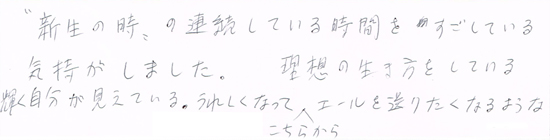 “新生の時〟の連続している時間をすごしている
気持がしました。　理想の生き方をしている
輝く自分が見えている。うれしくなって、エールを送りたくなるような
こちらから